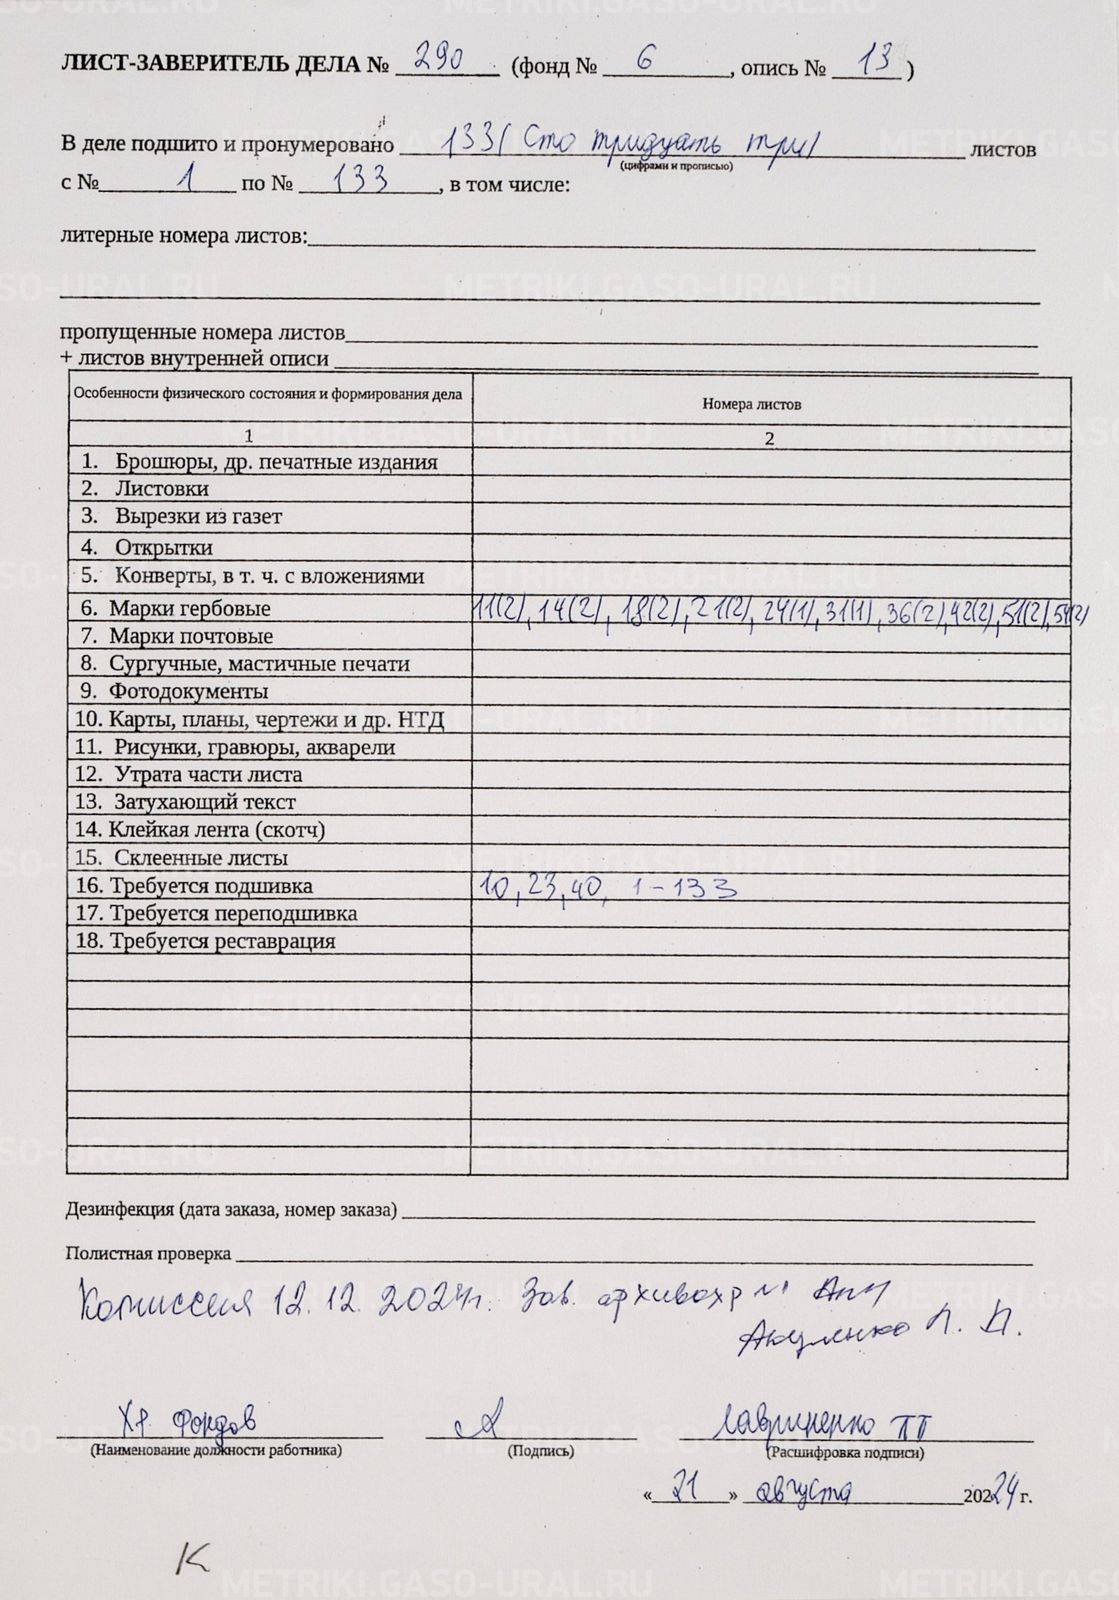 ЛИСТ-ЗАВЕРИТЕЛЬ ДЕЛА № 290 (фонд № 6, опись № 13)
В деле подшито и пронумеровано 133 (Сто тридцать три) листов
(цифрами и прописью)
с № 1 по № 133, в том числе:
литерные номера листов:
пропущенные номера листов
+ листов внутренней описи
Особенности физического состояния и формирования дела Номера листов
1 2
1. Брошюры, др. печатные издания
2. Листовки
3. Вырезки из газет
4. Открытки
5. Конверты, в т. ч. с вложениями
6. Марки гербовые 11(2), 14(2), 18(2), 21(2), 24(1), 31(1), 36(2), 42(2), 51(2), 54(2)
7. Марки почтовые
8. Сургучные, мастичные печати
9. Фотодокументы
10. Карты, планы, чертежи и др. НТД
11. Рисунки, гравюры, акварели
12. Утрата части листа
13. Затухающий текст
14. Клейкая лента (скотч)
15. Склеенные листы
16. Требуется подшивка 10, 23, 40, 1-133
17. Требуется переподшивка
18. Требуется реставрация
Дезинфекция (дата заказа, номер заказа)
Полистная проверка
Комиссия 12.12.2024г. Зав. архивохр
Хр. фондов Лавриненко ПП
(Наименование должности работника) (Подпись) (Расшифровка подписи)
«21» августа 2024 г.
К
METRIKI.GASO-URAL.RU